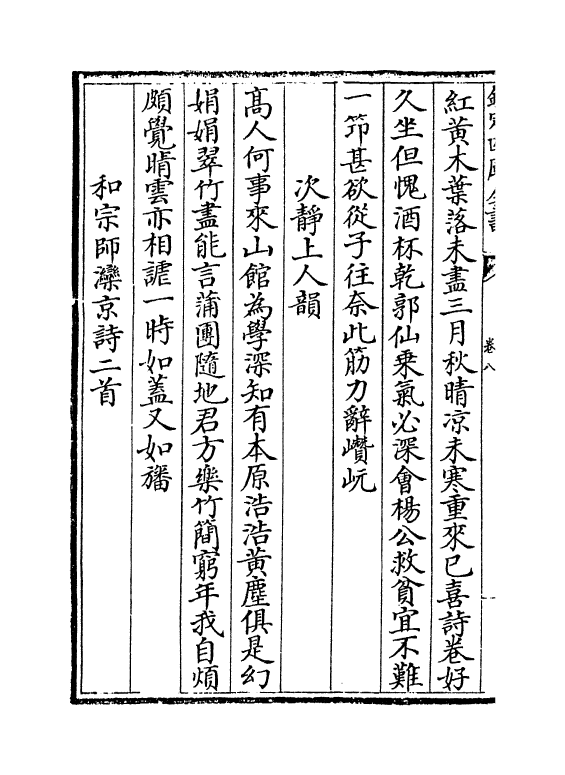 欽定四庫全書
卷八
紅黃木葉落未盡三月秋晴凉未寒重來已喜詩卷好
久坐但愧酒杯乾郭仙乗氣必深會楊公救貧宜不難
一笻甚欲從子往奈此筋力辭巑岏
次靜上人韻
高人何事來山館為學深知有本原浩浩黃塵俱是幻
娟娟翠竹盡能言蒲團隨地君方樂竹簡窮年我自煩
頗覺晴雲亦相謔一時如蓋又如旛
和宗師灤京詩二首